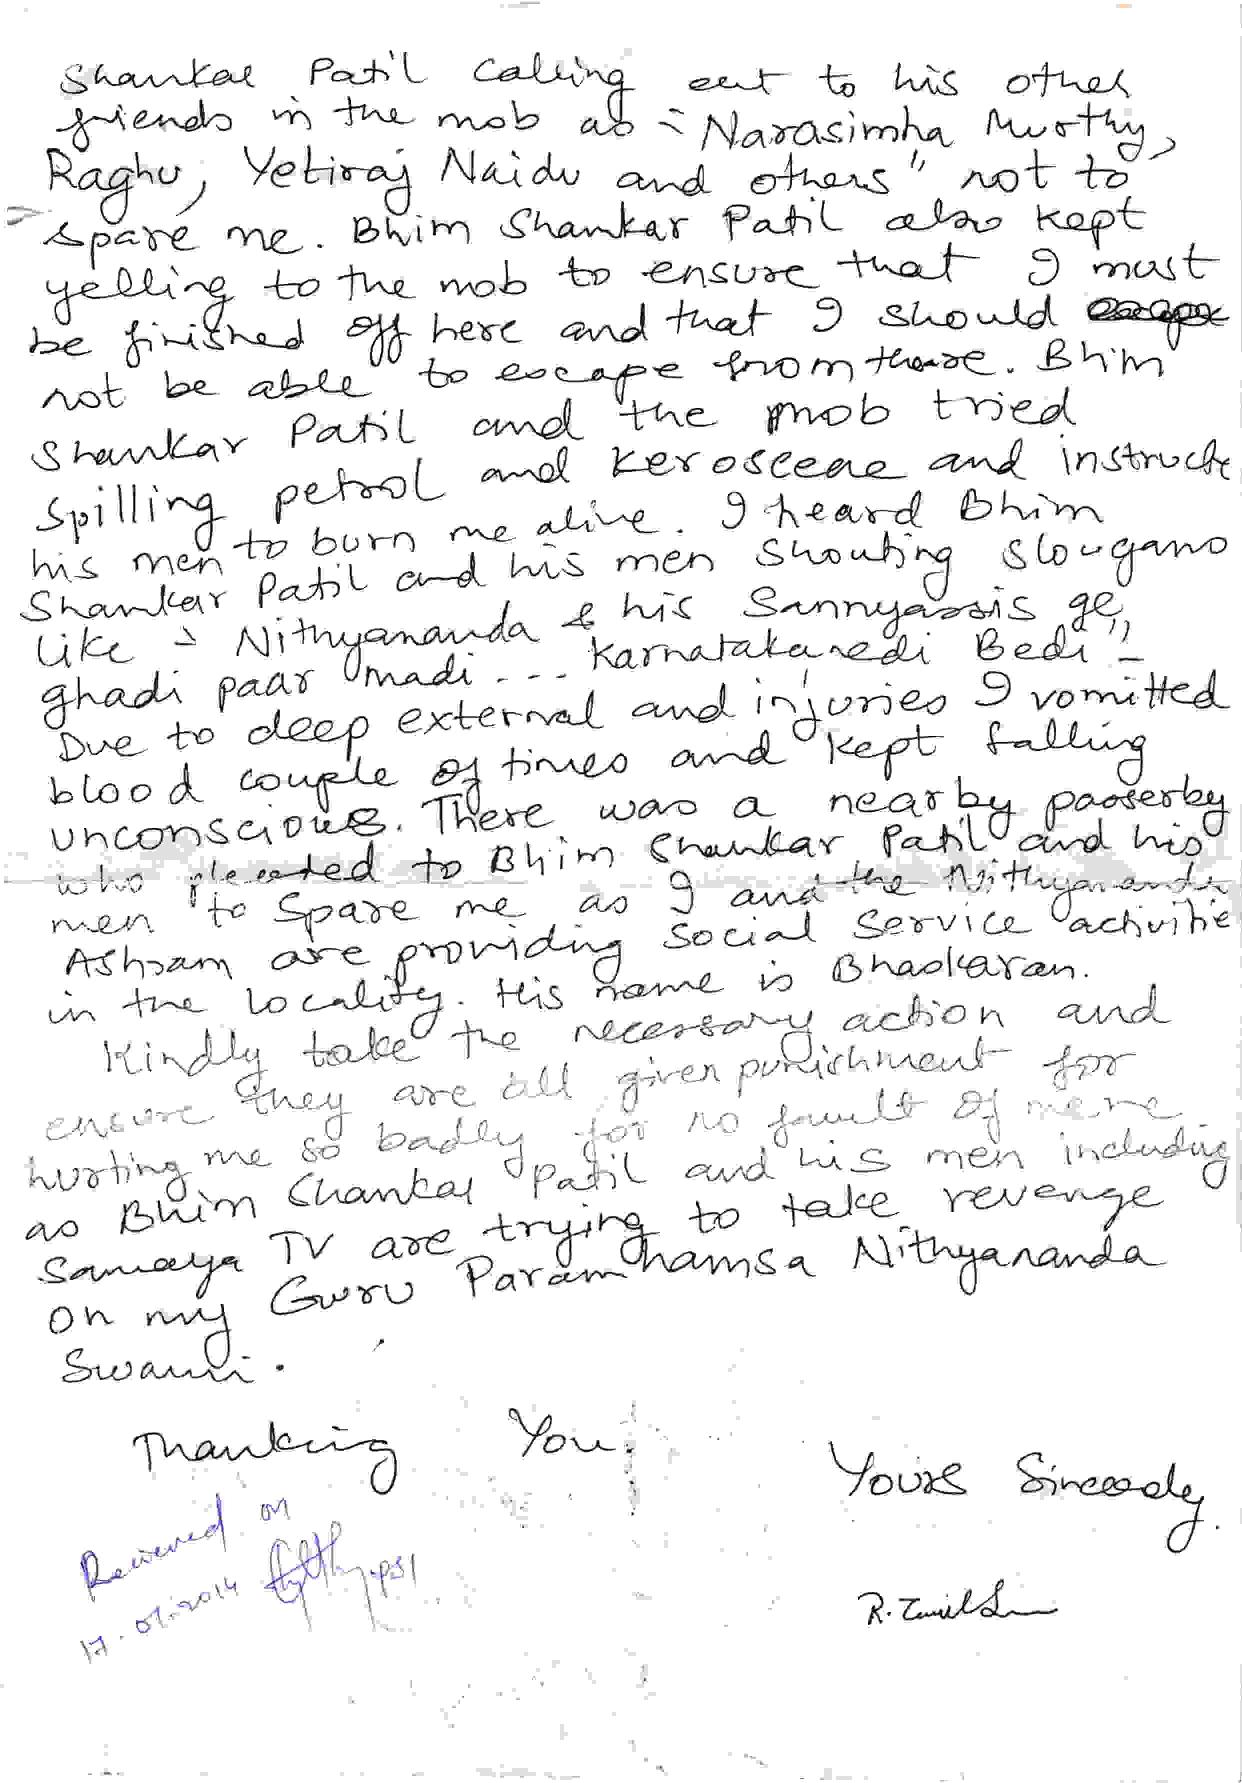 Shankar Patil calling out to his other
friends in the mob as - "Narasimha Murthy,
Raghu, Yetiraj Naidu and others" not to
spare me. Bhim Shankar Patil also kept
yelling to the mob to ensure that I must
be finished off here and that I should escape
not be able to escape from there. Bhim
Shankar Patil and the mob tried
spilling petrol and keroscene and instructe
his men to burn me alive. I heard Bhim
Shankar Patil and his men shouting slougans
like - Nithyananda & his Sannyassis ge
ghadi paar madi --- Karnatakanedi Bedi" -
Due to deep external and injuries I vomitted
blood couple of times and kept falling
unconscious. There was a nearby passerby
who pleaded to Bhim Shankar Patil and his
men to spare me as I and the Nithyananda
Ashram are providing social service activitie
in the locality. His name is Bhaskaran.
Kindly take the necessary action and
ensure they are all given punishment for
hurting me so badly for no fault of mine
as Bhim Shankar Patil and his men including
Samaya TV are trying to take revenge
on my Guru Paramhamsa Nithyananda
Swami.
Thanking You.
Yours Sincerely.
Received on
17.07.2014 PSI
R.